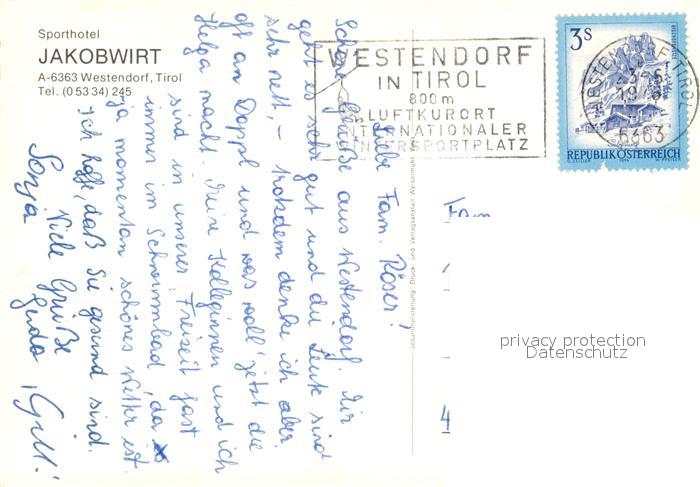 Sporthotel
JAKOBWIRT
A-6363 Westendorf, Tirol
Tel. (0 53 34) 245
WESTENDORF
IN TIROL
800 m
LUFTKURORT
INTERNATIONALER
WINTERSPORTPLATZ
3S
REPUBLIK ÖSTERREICH
WESTENDORF, TIROL
6363
Liebe Fam. Röser!
Schöne Grüße aus Westendorf. Mir
geht es sehr gut und die Leute sind
sehr nett, - trotzdem denke ich aber
oft an Doppl und was woll jetzt die
Helga macht. Meine Kolleginnen und ich
sind in unserer Freizeit fast
immer im Schwimmbad, da
ja momentan schönes Wetter ist.
Ich hoffe, daß Sie gesund sind.
Viele Grüße
Sonja
Fam
4
privacy protection
Datenschutz